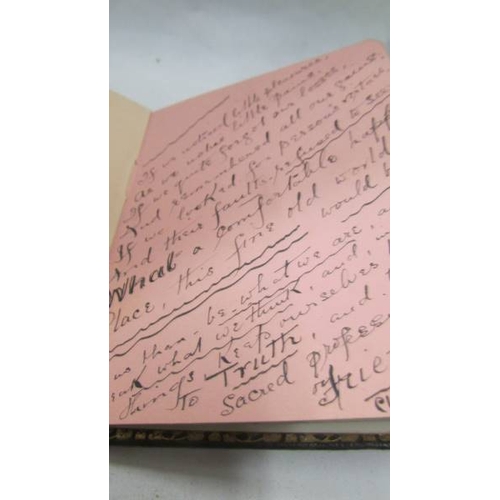 If we noticed little pleasures,
As we notice little pains.
If we quite forgot our losses,
And remembered all our gains.
If we looked for persons virtues
And their faults, refused to see
What a comfortable happ
Place, this fine old world would b
us than - be - what we are, a
eak what we think, and,
keep ourselves
To Truth, and
Sacred profess